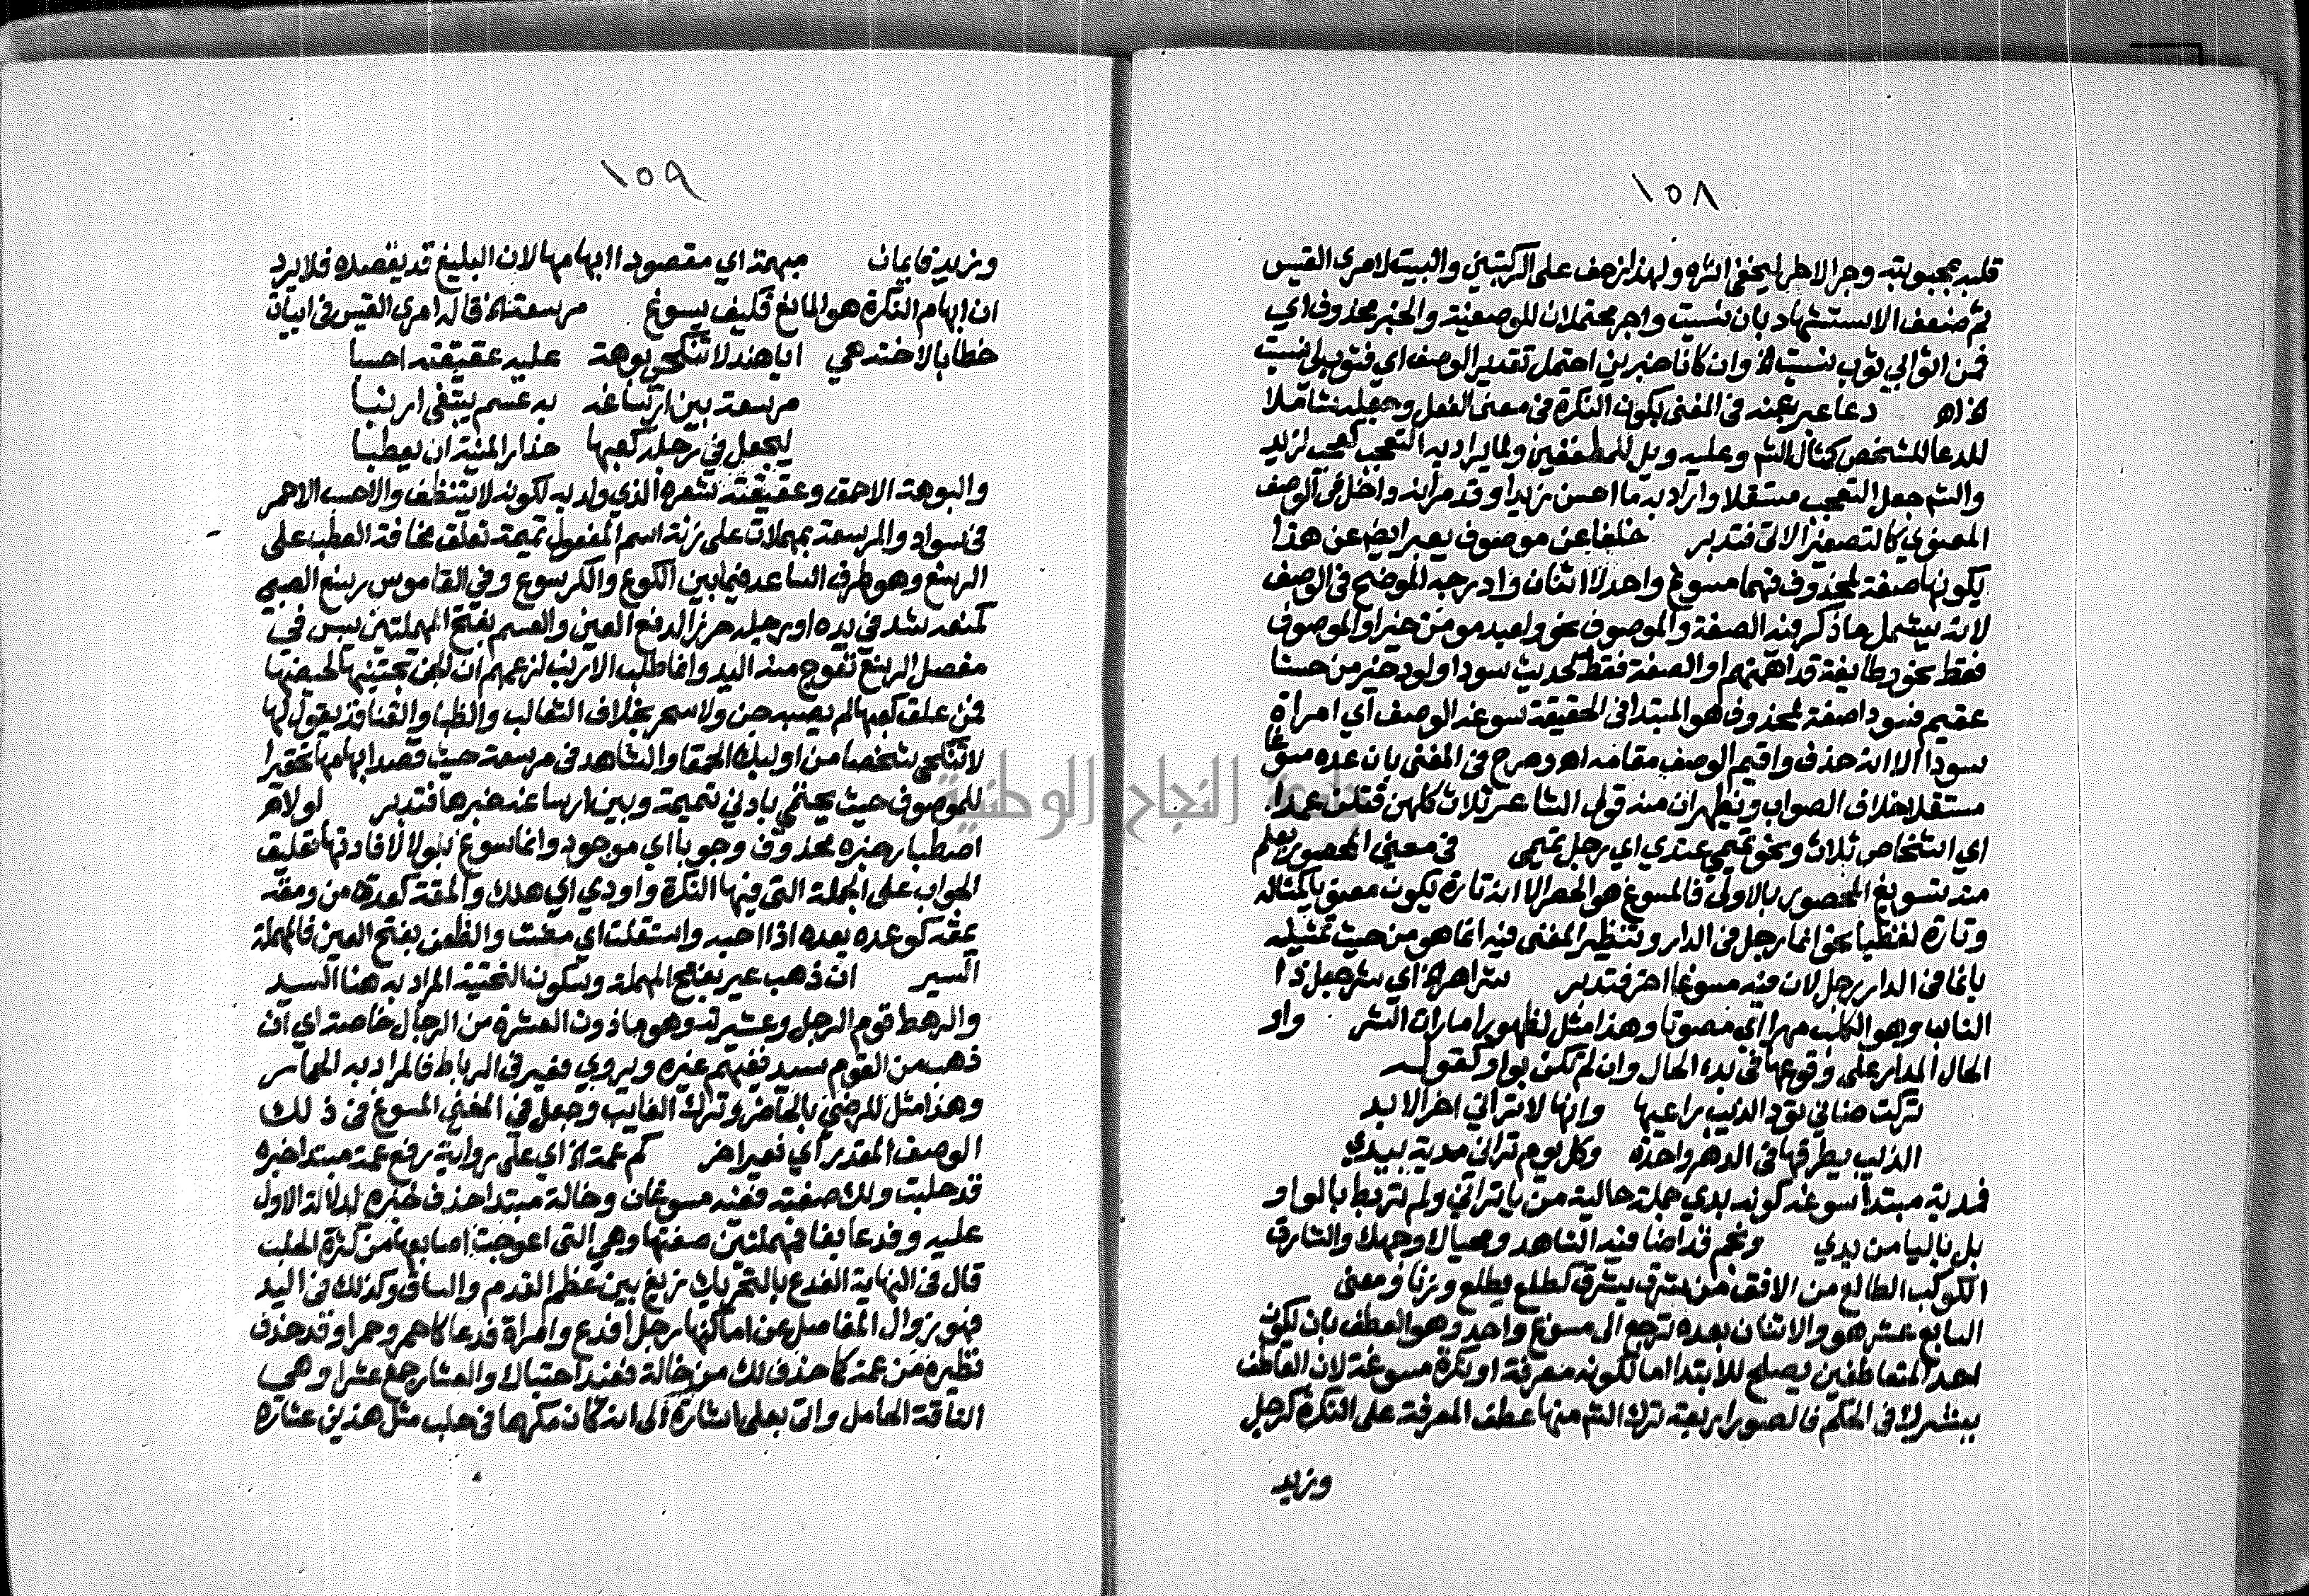 ١٥٨
قلبه بمحبوبته وجر الاطر ليخفى اثره ولهذا زحف على الركبتين والبيت لامرئ القيس
ثم ضعف الاستشهاد بان نسيت واجر محتملان للوصفية والخبر محذوف اي
فمن اثوابي ثوب نسيت الخ وان كانا خبرين احتمل تقدير الوصف اي فثوب لي نسيت
الخ اه دعا عبر عنه في المغني بكون النكرة في معنى الفعل وجعله شاملا
للدعا للشخص كمثال الشم وعليه ويل للمطففين ولما يراد به التعجب كعجب لزيد
والشم جعل التعجب مستقلا واراد به ما احسن زيدا وقد مر انه داخل في الوصف
المعنوي كالتصغير الاتي فتدبر خلفا عن موصوف يعبر ايض عن هذا
بكونها صفة لمحذوف فهما مسوغ واحد لا اثنان وادرجه الموضح في الوصف
لانه يشمل ما ذكر فيه الصفة والموصوف نحو ولعبد مومن خير او الموصوف
فقط نحو وطايفة قد اهمتهم او الصفة فقط كحديث سودا ولود خير من حسنا
عقيم فسودا صفة لمحذوف هو المبتدا في الحقيقة سوغه الوصف اي امراة
سودا الا انه حذف واقيم الوصف مقامه اه وصرح في المغني بان عده مسوغا
مستقلا خلاف الصواب ويظهر ان منه قول الشاعر ثلاث كلهن قتلت عمدا
اي اشخاص ثلاث ونحو تميمي عندي اي رجل تميمي في معنى المحصور يعلم
منه تسويغ المحصور بالاولى فالمسوغ هو الحصر الا انه تارة يكون معنويا كمثاله
وتارة لفظيا نحو انما رجل في الدار وتنظير المغني فيه انما هو من حيث تمثيله
بانما في الدار رجل لان فيه مسوغا اخر فتدبر شر اهر الخ اي شر جعل ذا
الناب وهو الكلب مهرا اي مصوتا وهذا مثل لظهور امارات الشر واو
الحال المدار على وقوعها في بدء الحال وان لم تكن بواو كقوله
تركت ضاني تود الذيب راعيها وانها لا تراني اخر الابد
الذيب يطرقها في الدهر واحدة وكل يوم تراني مدية بيدي
فمدية مبتدأ سوغه كونه بدي جملة حالية من يا تراني ولم تربط بالواو
بل باليا من يدي ونجم قد اضا فيه الشاهد ومحياك وجهك والشارق
الكوكب الطالع من الافق من شرق يشرق كطلع يطلع وزنا ومعنى
السابع عشر هو والاثنان بعده ترجع الى مسوغ واحد وهو العطف بان يكون
احد المتعاطفين يصلح للابتدا اما لكونه معرفة او نكرة مسوغة لان العاطف
يشرك في الحكم فالصور اربعة ترك الشم منها عطف المعرفة على النكرة كرجل
وزيد
١٥٩
وزيد قايمان مبهمة اي مقصودا ابهامها لان البليغ قد يقصده فلا يرد
ان ابهام النكرة هو المانع فكيف يسوغ مرسعة الخ قاله امرئ القيس في ابيات
خطابا لاخته هي ايا هند لا تنكحي بوهة عليه عقيقته احسبا
مرسعة بين ارساغه به عسم يبتغي ارنبا
ليجعل في رجله كعبها حذار المنية ان يعطبا
والبوهة الاحمق وعقيقته شعره الذي ولد به لكونه لا يتنظف والاحسب الاحمر
في سواد والمرسعة بمهملات على زنة اسم المفعول تميمة تعلق مخافة العطب على
الرسغ وهو طرف الساعد فيما بين الكوع والكرسوع وفي القاموس رسع الصبي
كمنع شد في يده او رجله حرزا لدفع العين والعسم بفتح المهملتين يبس في
مفصل الرسغ تعوج منه اليد وانما طلب الارنب لزعمهم ان الجن تجتنبها لحيضها
فمن علق كعبها لم يصبه جن ولا سحر بخلاف الثعالب والظبا والقنافذ يقول لها
لا تنكحي شخصا من اوليك الحمقا والشاهد في مرسعة حيث قصد ابهامها تحقيرا
للموصوف حيث يحتمي بادنى تميمة وبين ارساغه خبرها فتدبر لولا
اصطبار خبره محذوف وجوبا اي موجود وانما سوغ بلولا لافادتها تعليق
الجواب على الجملة التي فيها النكرة واودي اي هلك والمقة كعدة من ومقه
يمقه كوعده يعده اذا احبه واستقلت اي مضت والظعن بفتح العين فالمهملة
السير ان ذهب عير بفتح المهملة وسكون التحتية المراد به هنا السيد
والرهط قوم الرجل وعشيرته وهو ما دون العشرة من الرجال خاصة اي ان
ذهب من القوم سيد ففيهم غيره ويروي فعير في الرباط فالمراد به الحمار
وهذا مثل للرضي بالحاضر وترك الغايب وجعل في المغني المسوغ في ذلك
الوصف المقدر اي فعير اخر كم عمة الخ اي على رواية رفع عمة مبتدا خبره
قد حلبت ولك صفته ففيه مسوغان وخالة مبتدا حذف خبره لدلالة الاول
عليه وفدعا بفا فمهملتين صفتها وهي التي اعوجت اصابعها من كثرة الحلب
قال في النهاية الفدع بالتحريك زيغ بين عظم القدم والساق وكذلك في اليد
فهو زوال المفاصل عن اماكنها رجل افدع وامراة فدعا كاحمر وحمرا وقد حذف
نظيره من عمة كما حذف لك من خالة ففيه احتباك والعشار جمع عشرا وهي
الناقة الحامل واتى بعلي اشارة الى انه كان مكرها في حلب مثل هذين عشاره